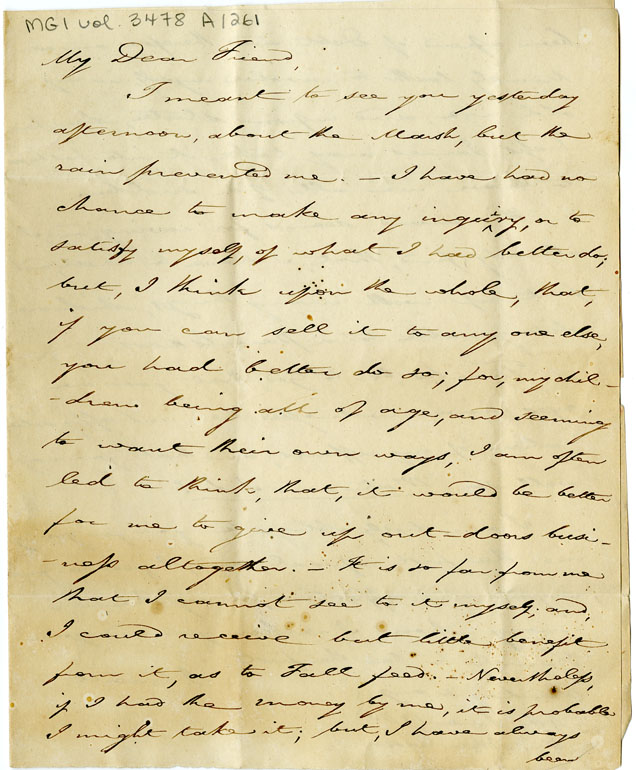 MG1 vol. 3478 A1261
My Dear Friend,
I meant to see you yesterday
afternoon, about the Marsh, but the
rain prevented me. – I have had no
chance to make any inquiry, or to
satisfy myself, of what I had better do;
but, I think upon the whole, that,
if you can sell it to any one else,
you had better do so; for, my chil-
-dren being all of age, and seeming
to want their own ways, I am often
led to think, that, it would be better
for me to give up out-doors busi-
-ness altogether. – It is so far from me
that I cannot see to it myself, and,
I could receive but little benefit
from it, as to Fall feed. – Nevertheless,
if I had the money by me, it is probable
I might take it; but, I have always
been